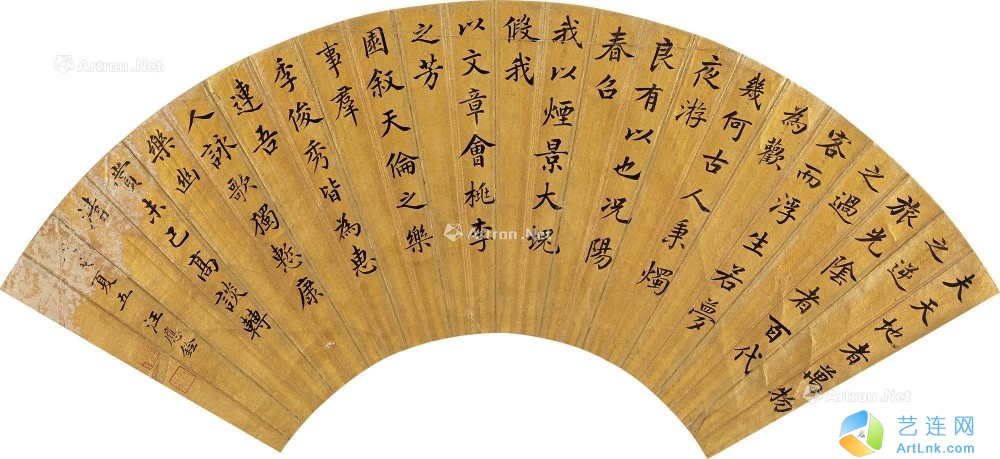 夫天地者萬物
之逆
旅光陰者百代
之過
客而浮生若夢
為歡
幾何古人秉燭
夜游
良有以也况陽
春召
我以煙景大塊
假我
以文章會桃李
之芳
園叙天倫之樂
事羣
季俊秀皆為惠
連吾
人詠歌獨慙康
樂幽
賞未已高談轉
清
戌夏五汪應銓
Artron.Net
Artron.Net
Artron.Net
艺连网
ArtLnk.com